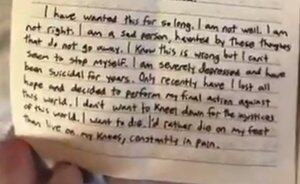 I have wanted this for so long. I am not well. I am
not right. I am a sad person, haunted by these thoughts
that do not go away. I know this is wrong but I can't
seem to stop myself. I am severely depressed and have
been suicidal for years. Only recently have I lost all
hope and decided to perform my final action against
this world. I don't want to kneel down for the injustices
of this world. I want to die. I'd rather die on my feet
than live on my knees, constantly in pain.